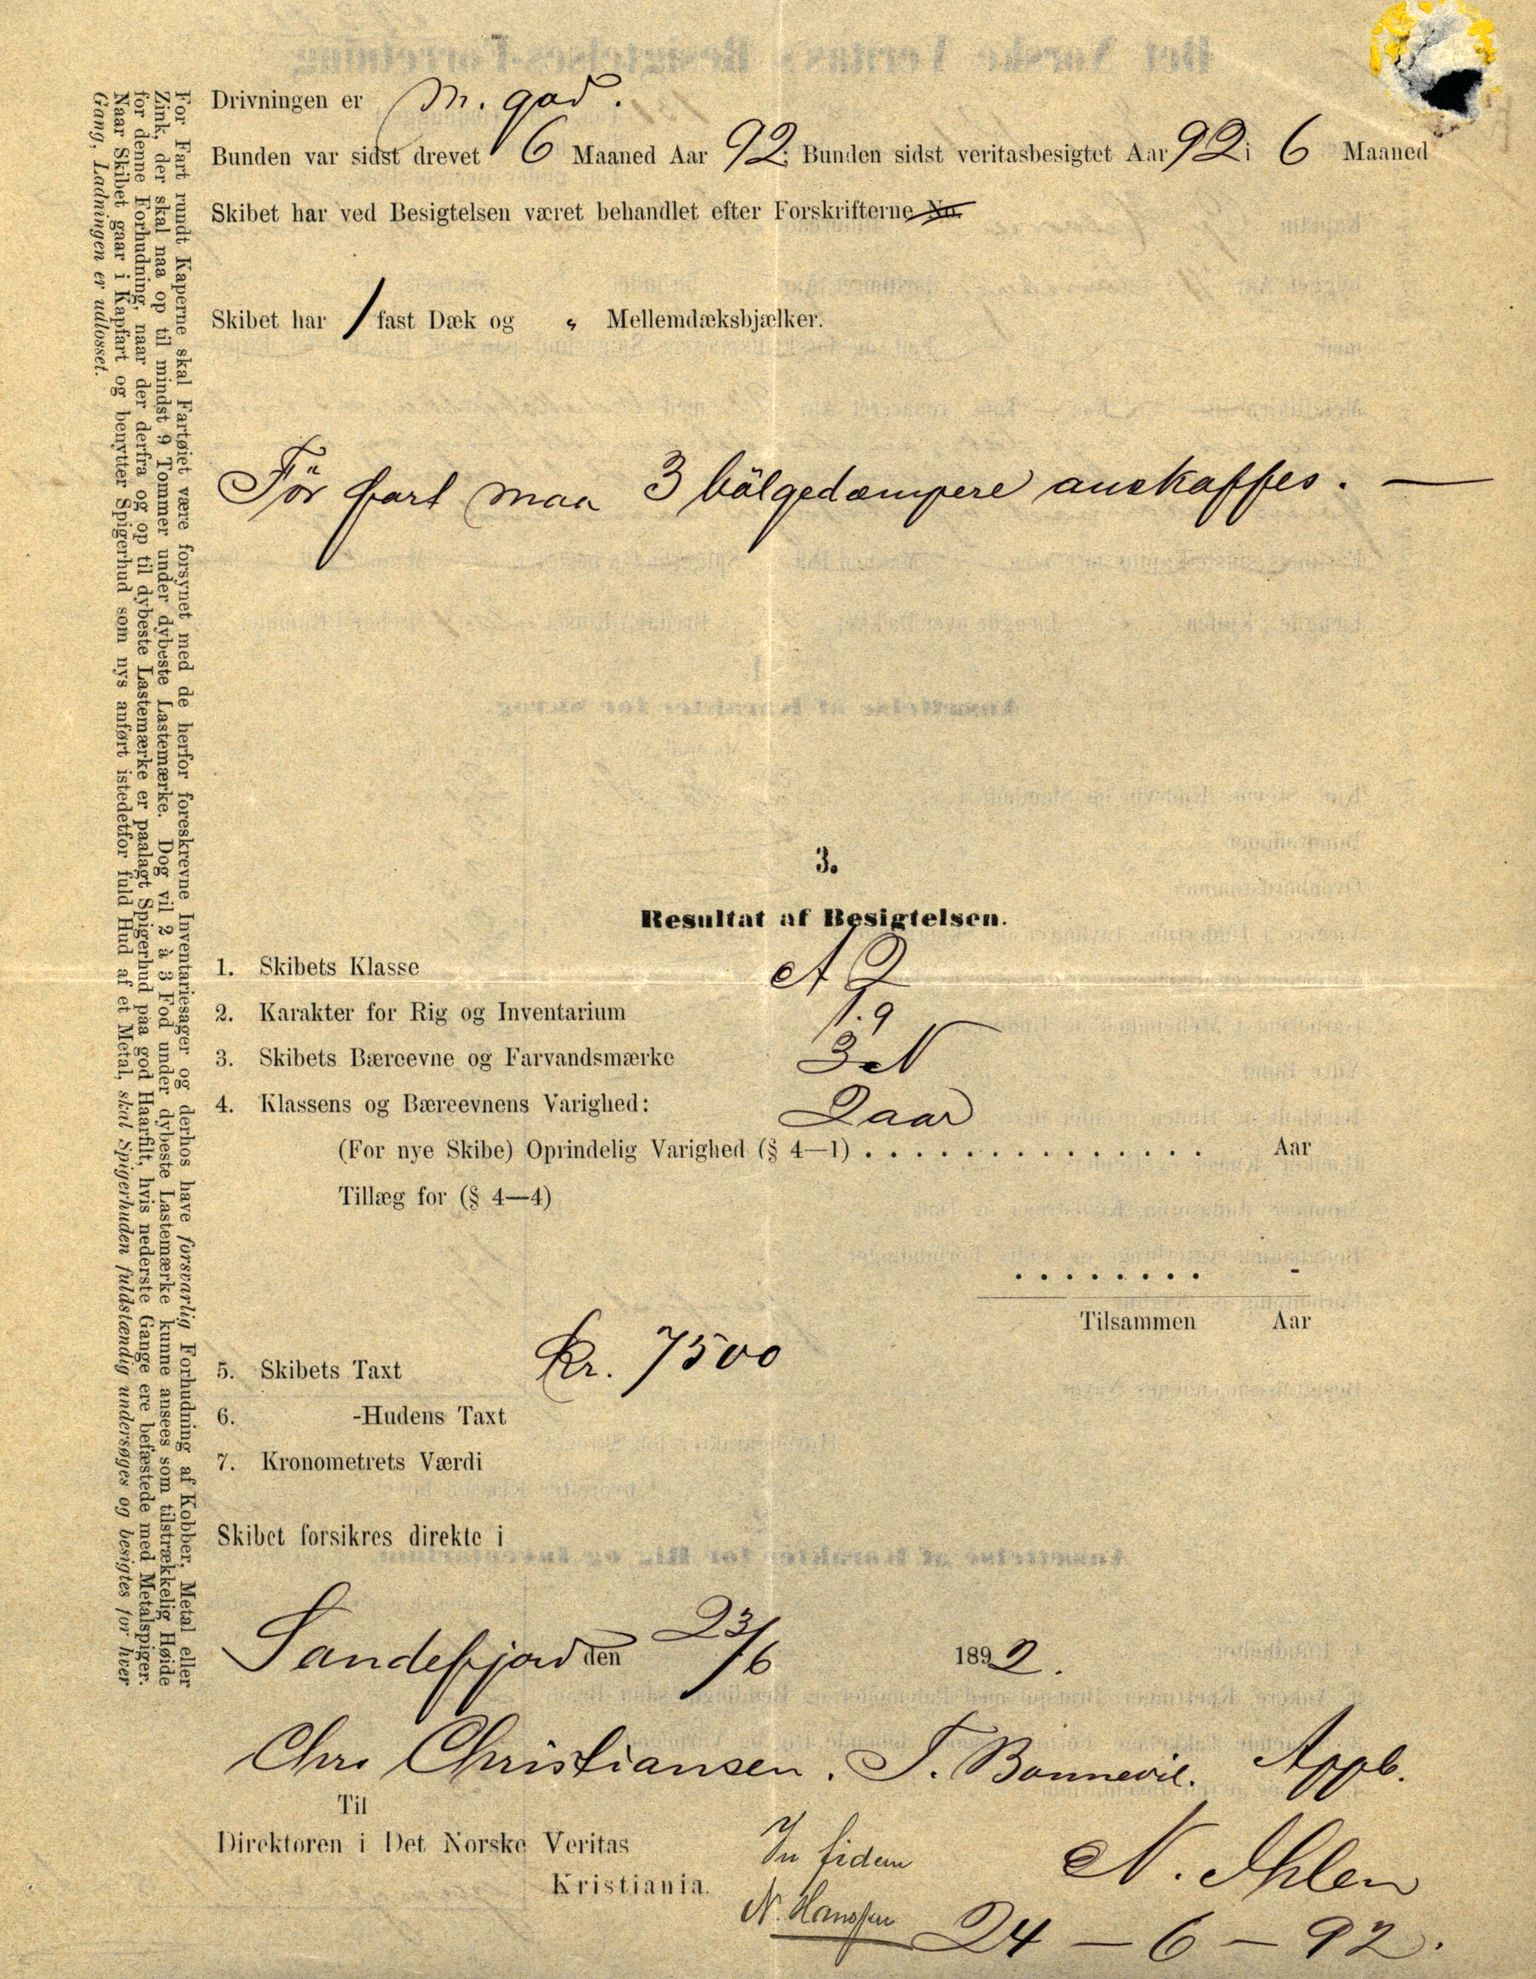 Drivningen er m. god.
Bunden var sidst drevet 6 Maaned Aar 92; Bunden sidst veritasbesigtet Aar 92 i 6 Maaned
Skibet har ved Besigtelsen været behandlet efter Forskrifterne No.
Skibet har 1 fast Dæk og „ Mellemdæksbjælker.
För fart maa 3 bölgedæmpere anskaffes. —
3.
Resultat af Besigtelsen.
1. Skibets Klasse A 2
2. Karakter for Rig og Inventarium 1.9
3. Skibets Bæreevne og Farvandsmærke 3 N
4. Klassens og Bæreevnens Varighed: 2 aar
(For nye Skibe) Oprindelig Varighed (§ 4—1) . . . . . . . . . . . . . . Aar
Tillæg for (§ 4—4)
. . . . . . . . -
Tilsammen Aar
5. Skibets Taxt kr. 7500
6. -Hudens Taxt
7. Kronometrets Værdi
Skibet forsikres direkte i
Sandefjord den 23/6 1892.
Chr. Christiansen. T. Bonnevie. Appb.
Til
Direktøren i Det Norske Veritas
Kristiania.
In fidem
N. Hanssen
N. Ihlen
24 — 6 — 92.
For Fart rundt Kaperne skal Fartøiet være forsynet med de herfor foreskrevne Inventariesager og derhos have forsvarlig Forhudning af Kobber, Metal eller
Zink, der skal naa op til mindst 9 Tommer under dybeste Lastemærke. Dog vil 2 à 3 Fod under dybeste Lastemærke kunne ansees som tilstrækkelig Høide
for denne Forhudning, naar der derfra og op til dybeste Lastemærke er paalagt Spigerhud paa god Haarfilt, hvis nederste Gange ere befæstede med Metalspiger.
Naar Skibet gaar i Kapfart og benytter Spigerhud som nys anført istedetfor fuld Hud af et Metal, skal Spigerhuden fuldstændig undersøges og besigtes for hver
Gang, Ladningen er udlosset.